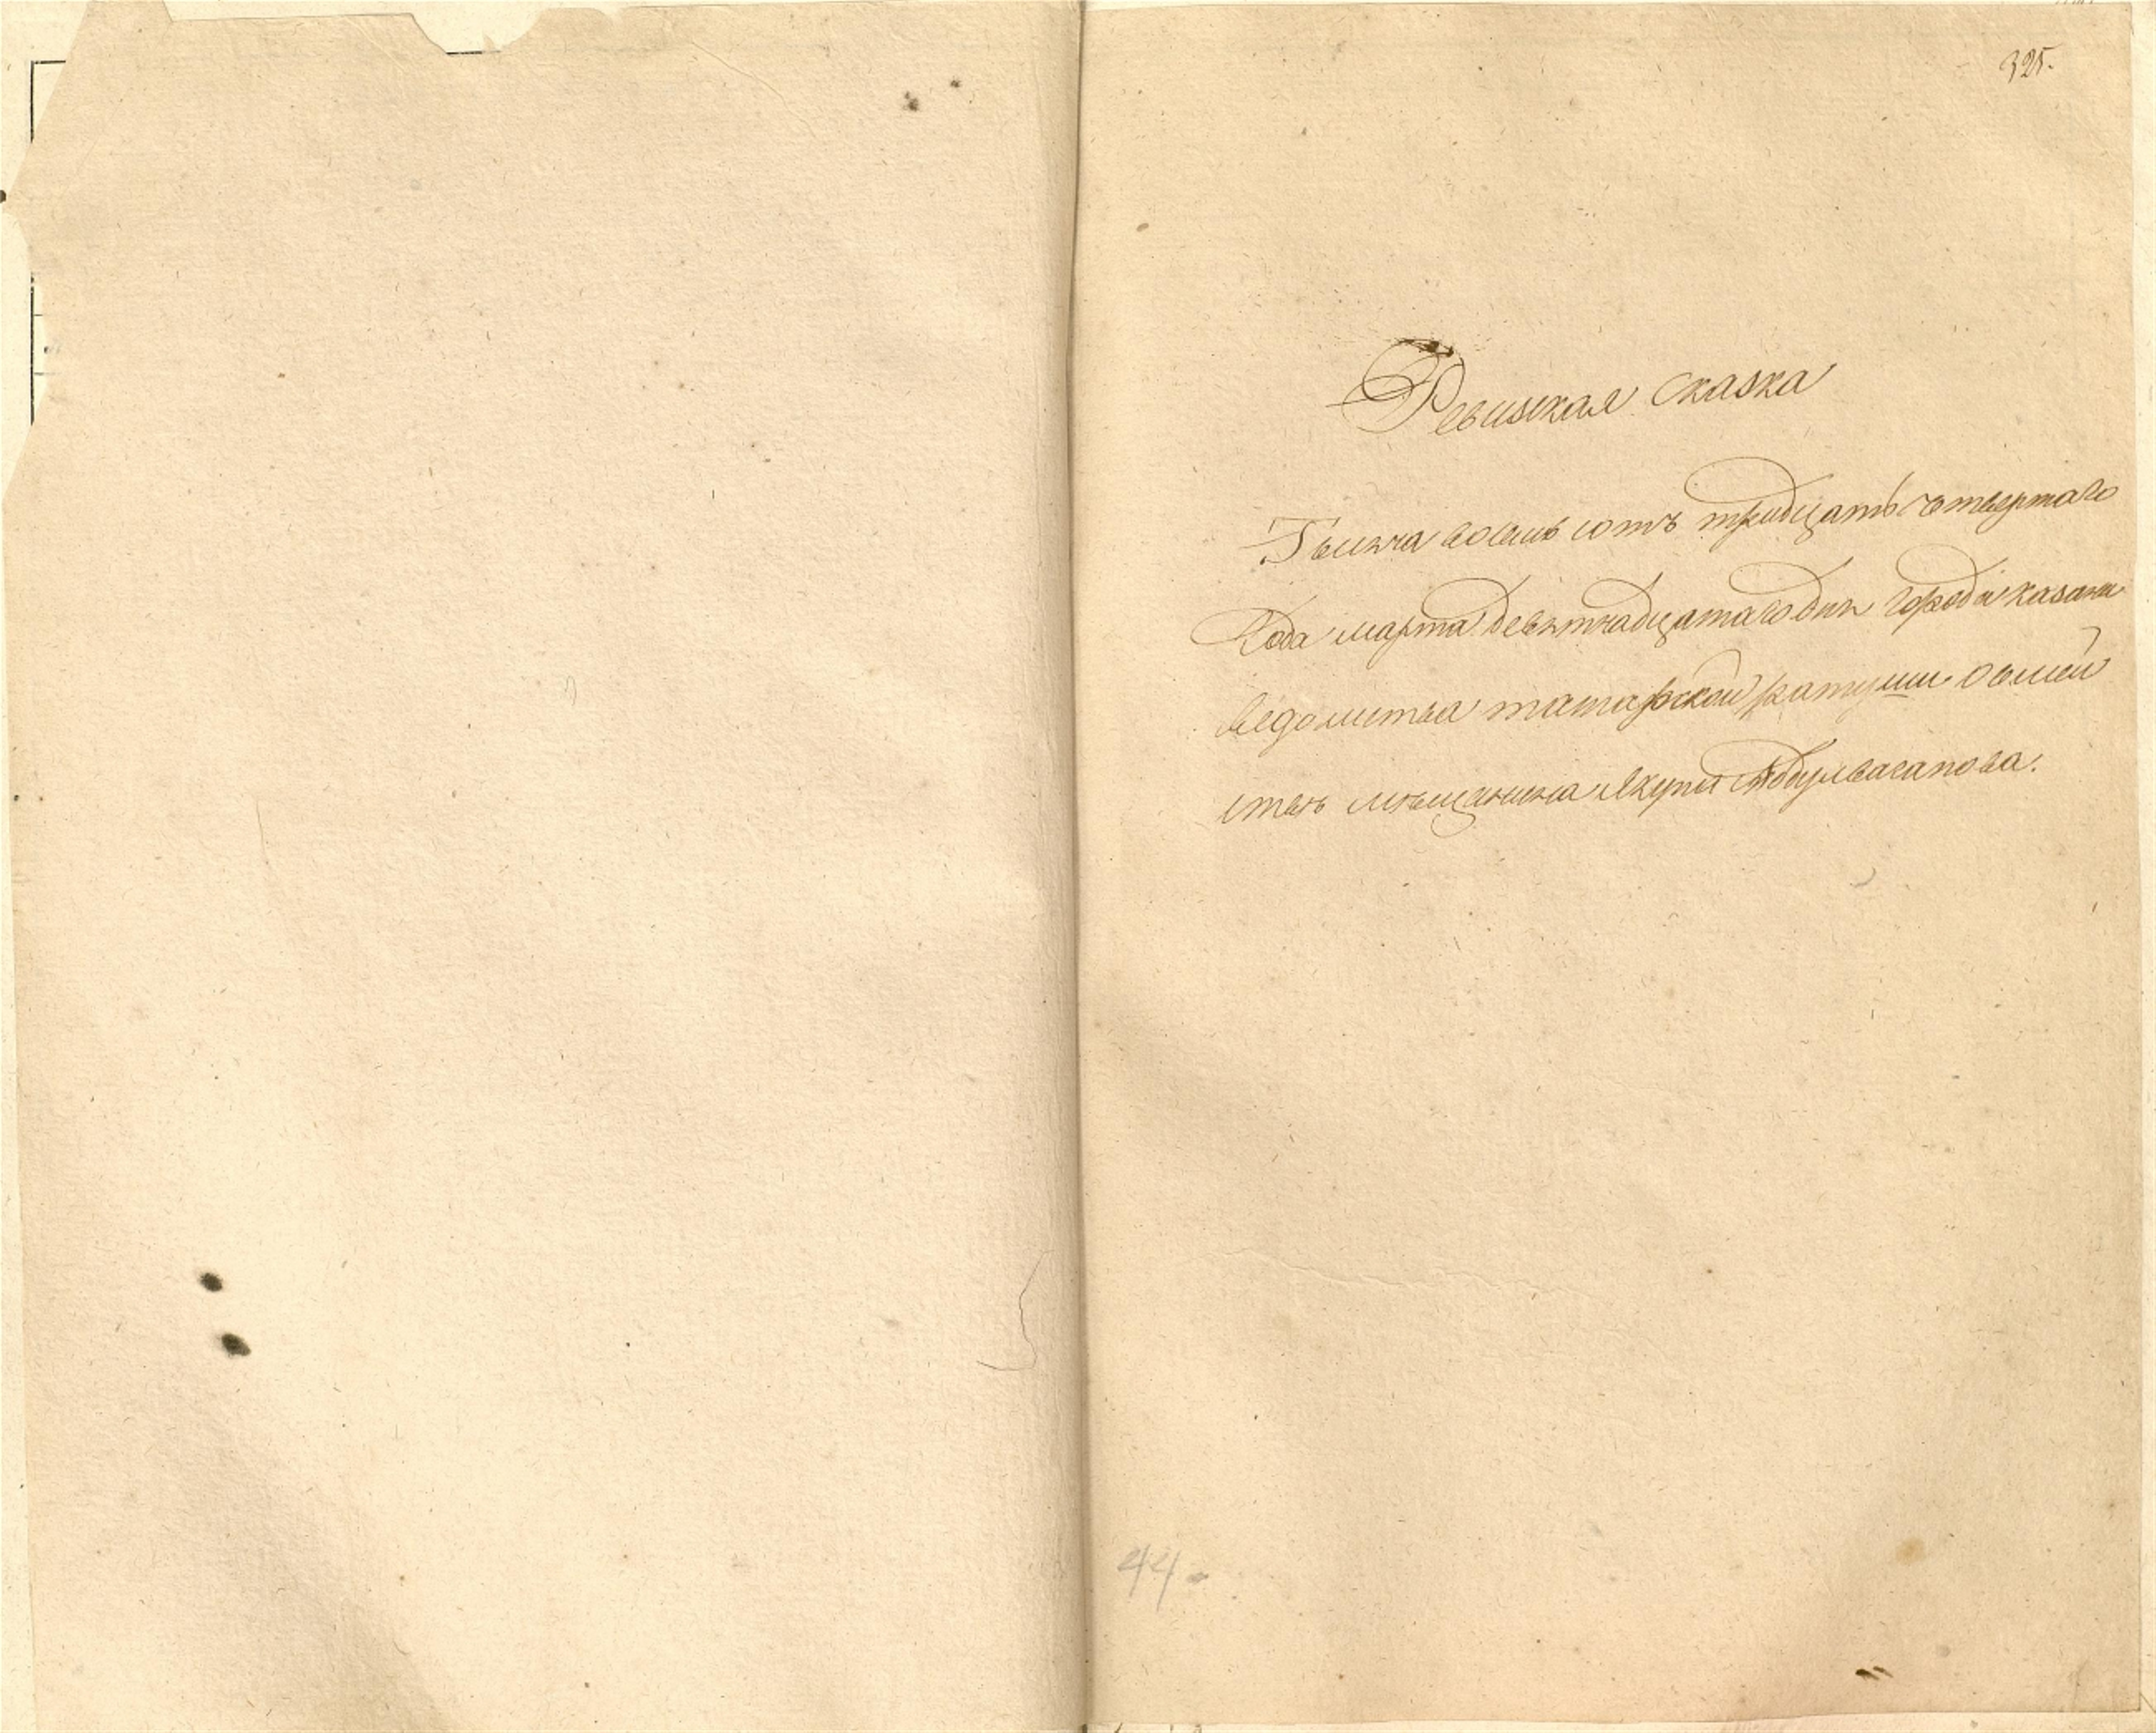 325.
Ревизская сказка
Тысяча восемь сотъ тридцать четвертаго
Года марта девятнадцатаго дня города казани
ведомства татарской ратуши о семей
стве мещанина Якупа Абдулвагапова.
44